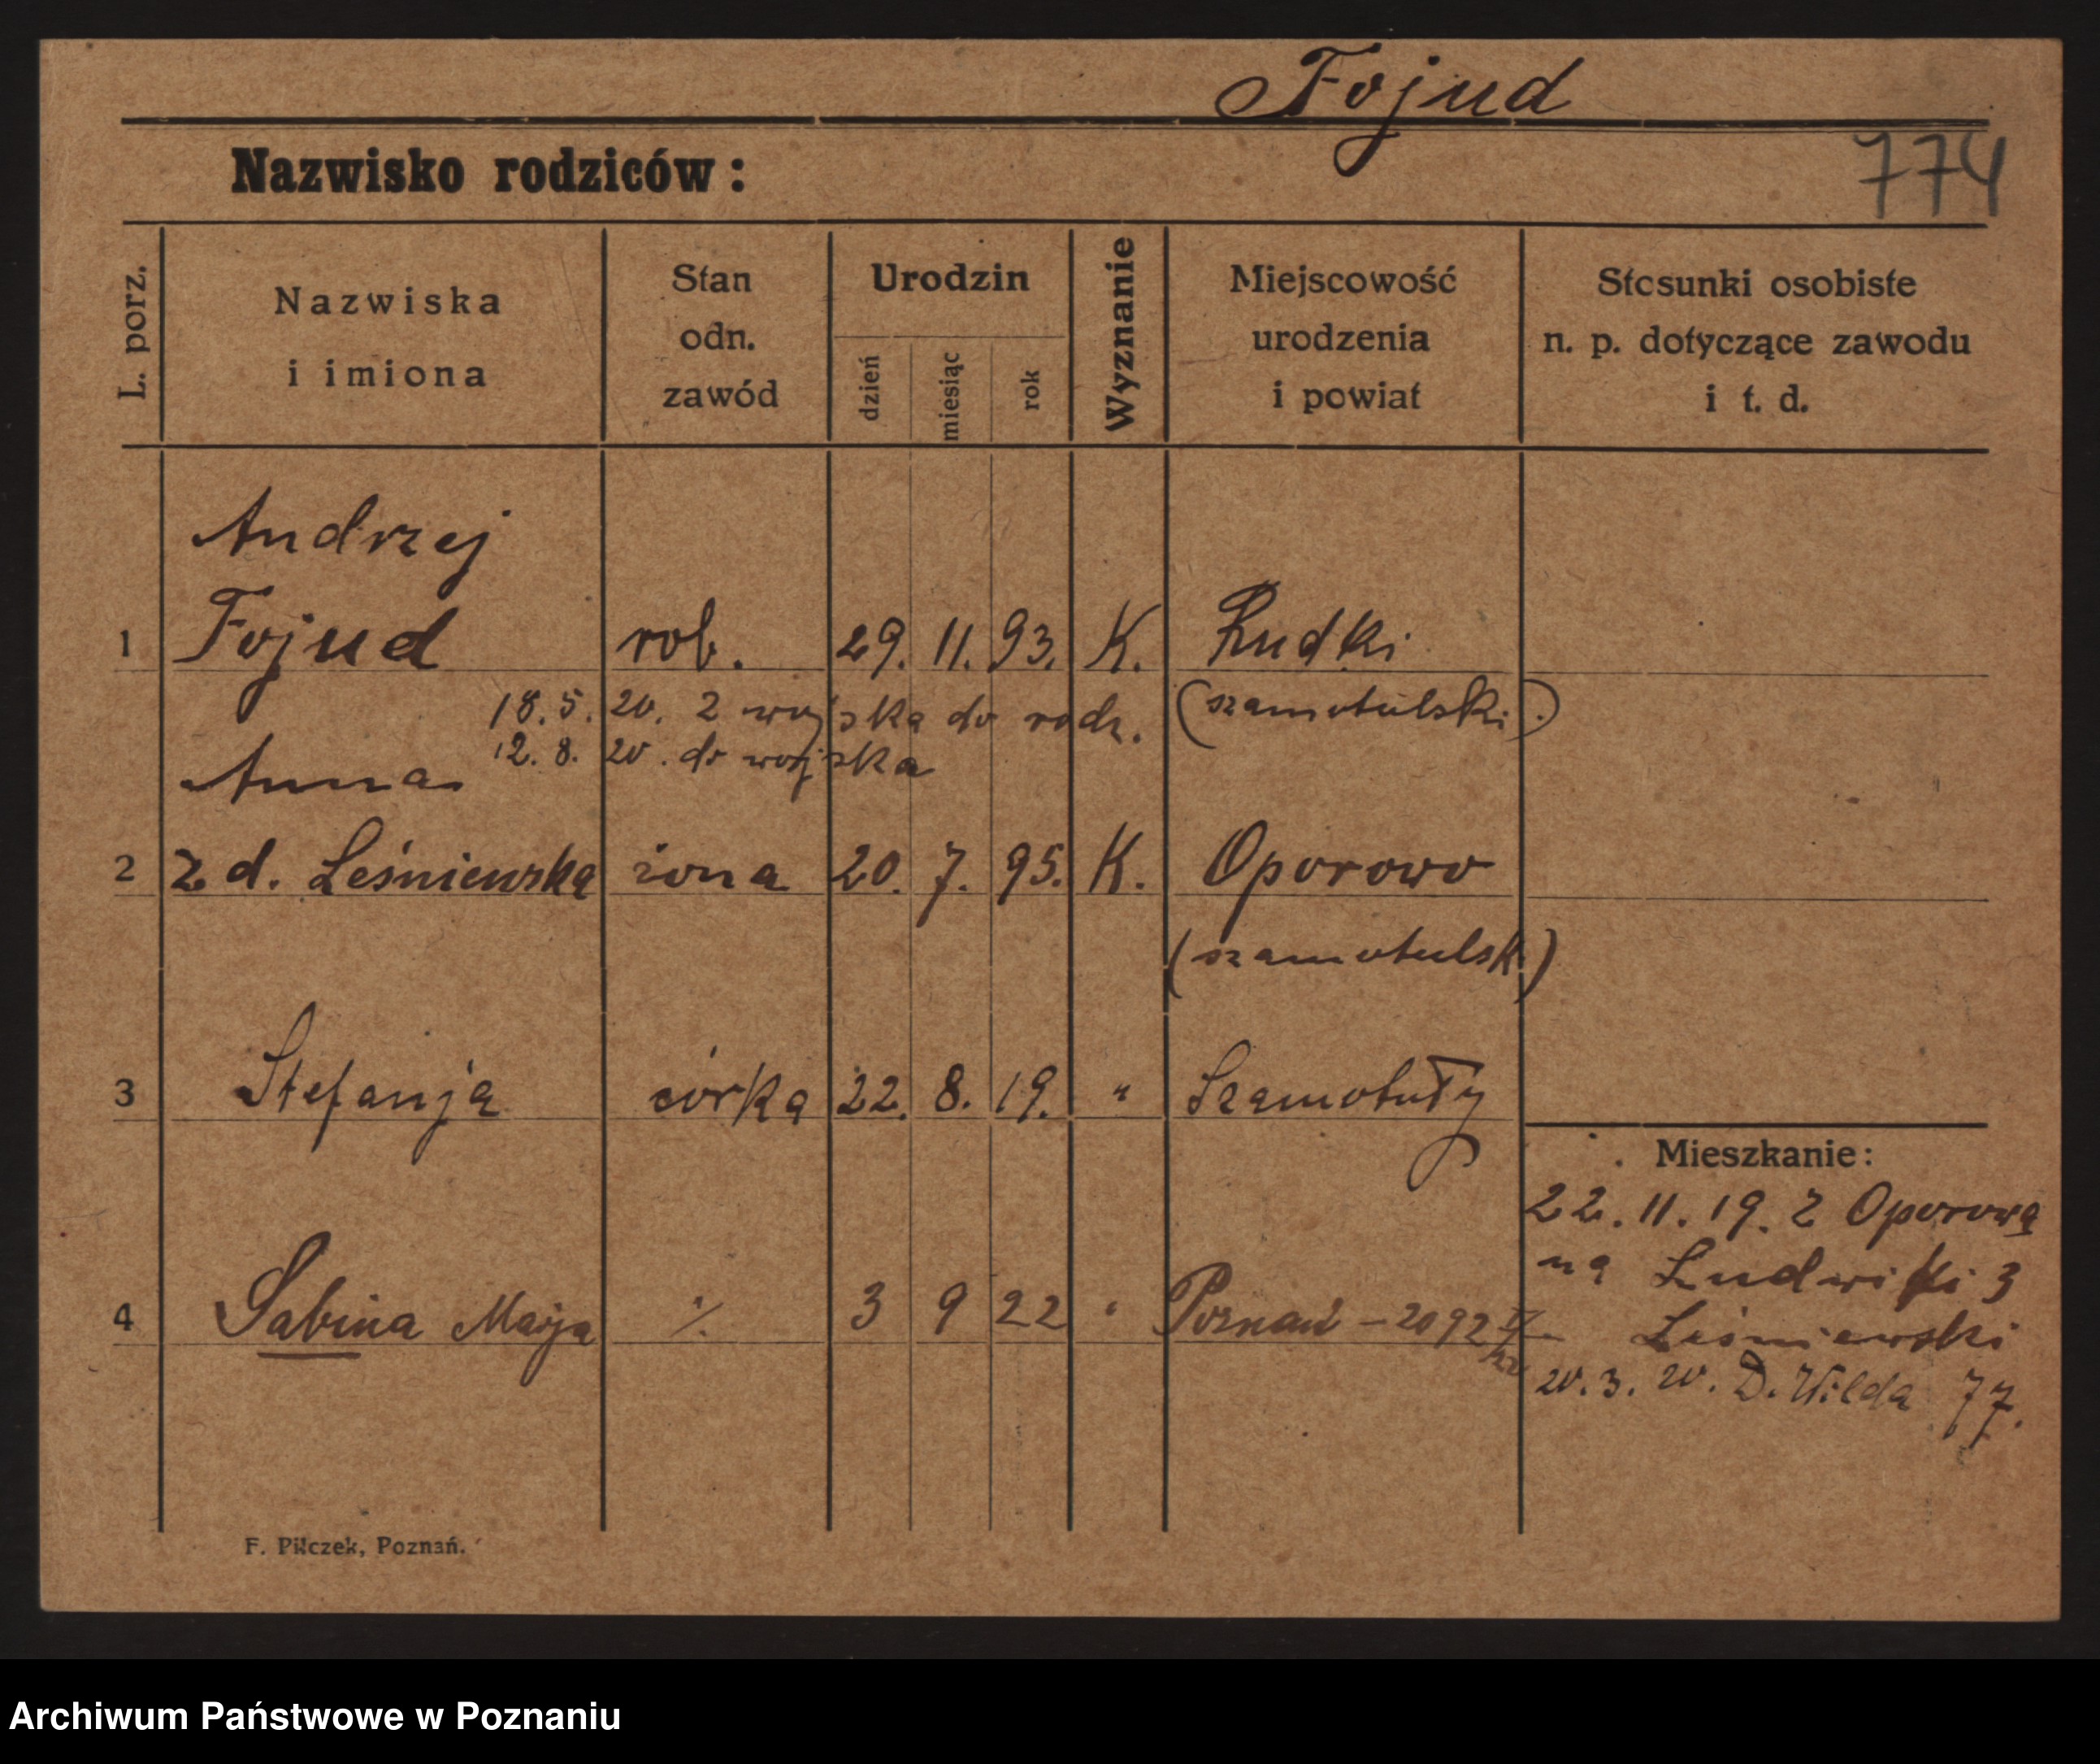 Fojud
Nazwisko rodziców:
774
L. porz.
Nazwiska
i imiona
Stan
odn.
zawód
Urodzin
dzień
miesiąc
rok
Wyznanie
Miejscowość
urodzenia
i powiat
Stosunki osobiste
n. p. dotyczące zawodu
i t. d.
Andrzej
1 Fojud rob. 29. 11. 93. K. Rudki
18. 5. 20. z wojska do rodz. (szamotulski)
12. 8. 20. do wojska
Anna
2 z d. Leśniewska żona 20. 7. 95. K. Oporowo
(szamotulsk)
3 Stefanja córka 22. 8. 19. " Szamotuły
Mieszkanie:
22. 11. 19. z Oporowa
na Ludwiki 3
Leśniewski
20. 3. 20. D. Wilda 77.
4 Sabina Marja ./. 3 9 22 " Poznań - 2092
F. Pilczek, Poznań.
Archiwum Państwowe w Poznaniu